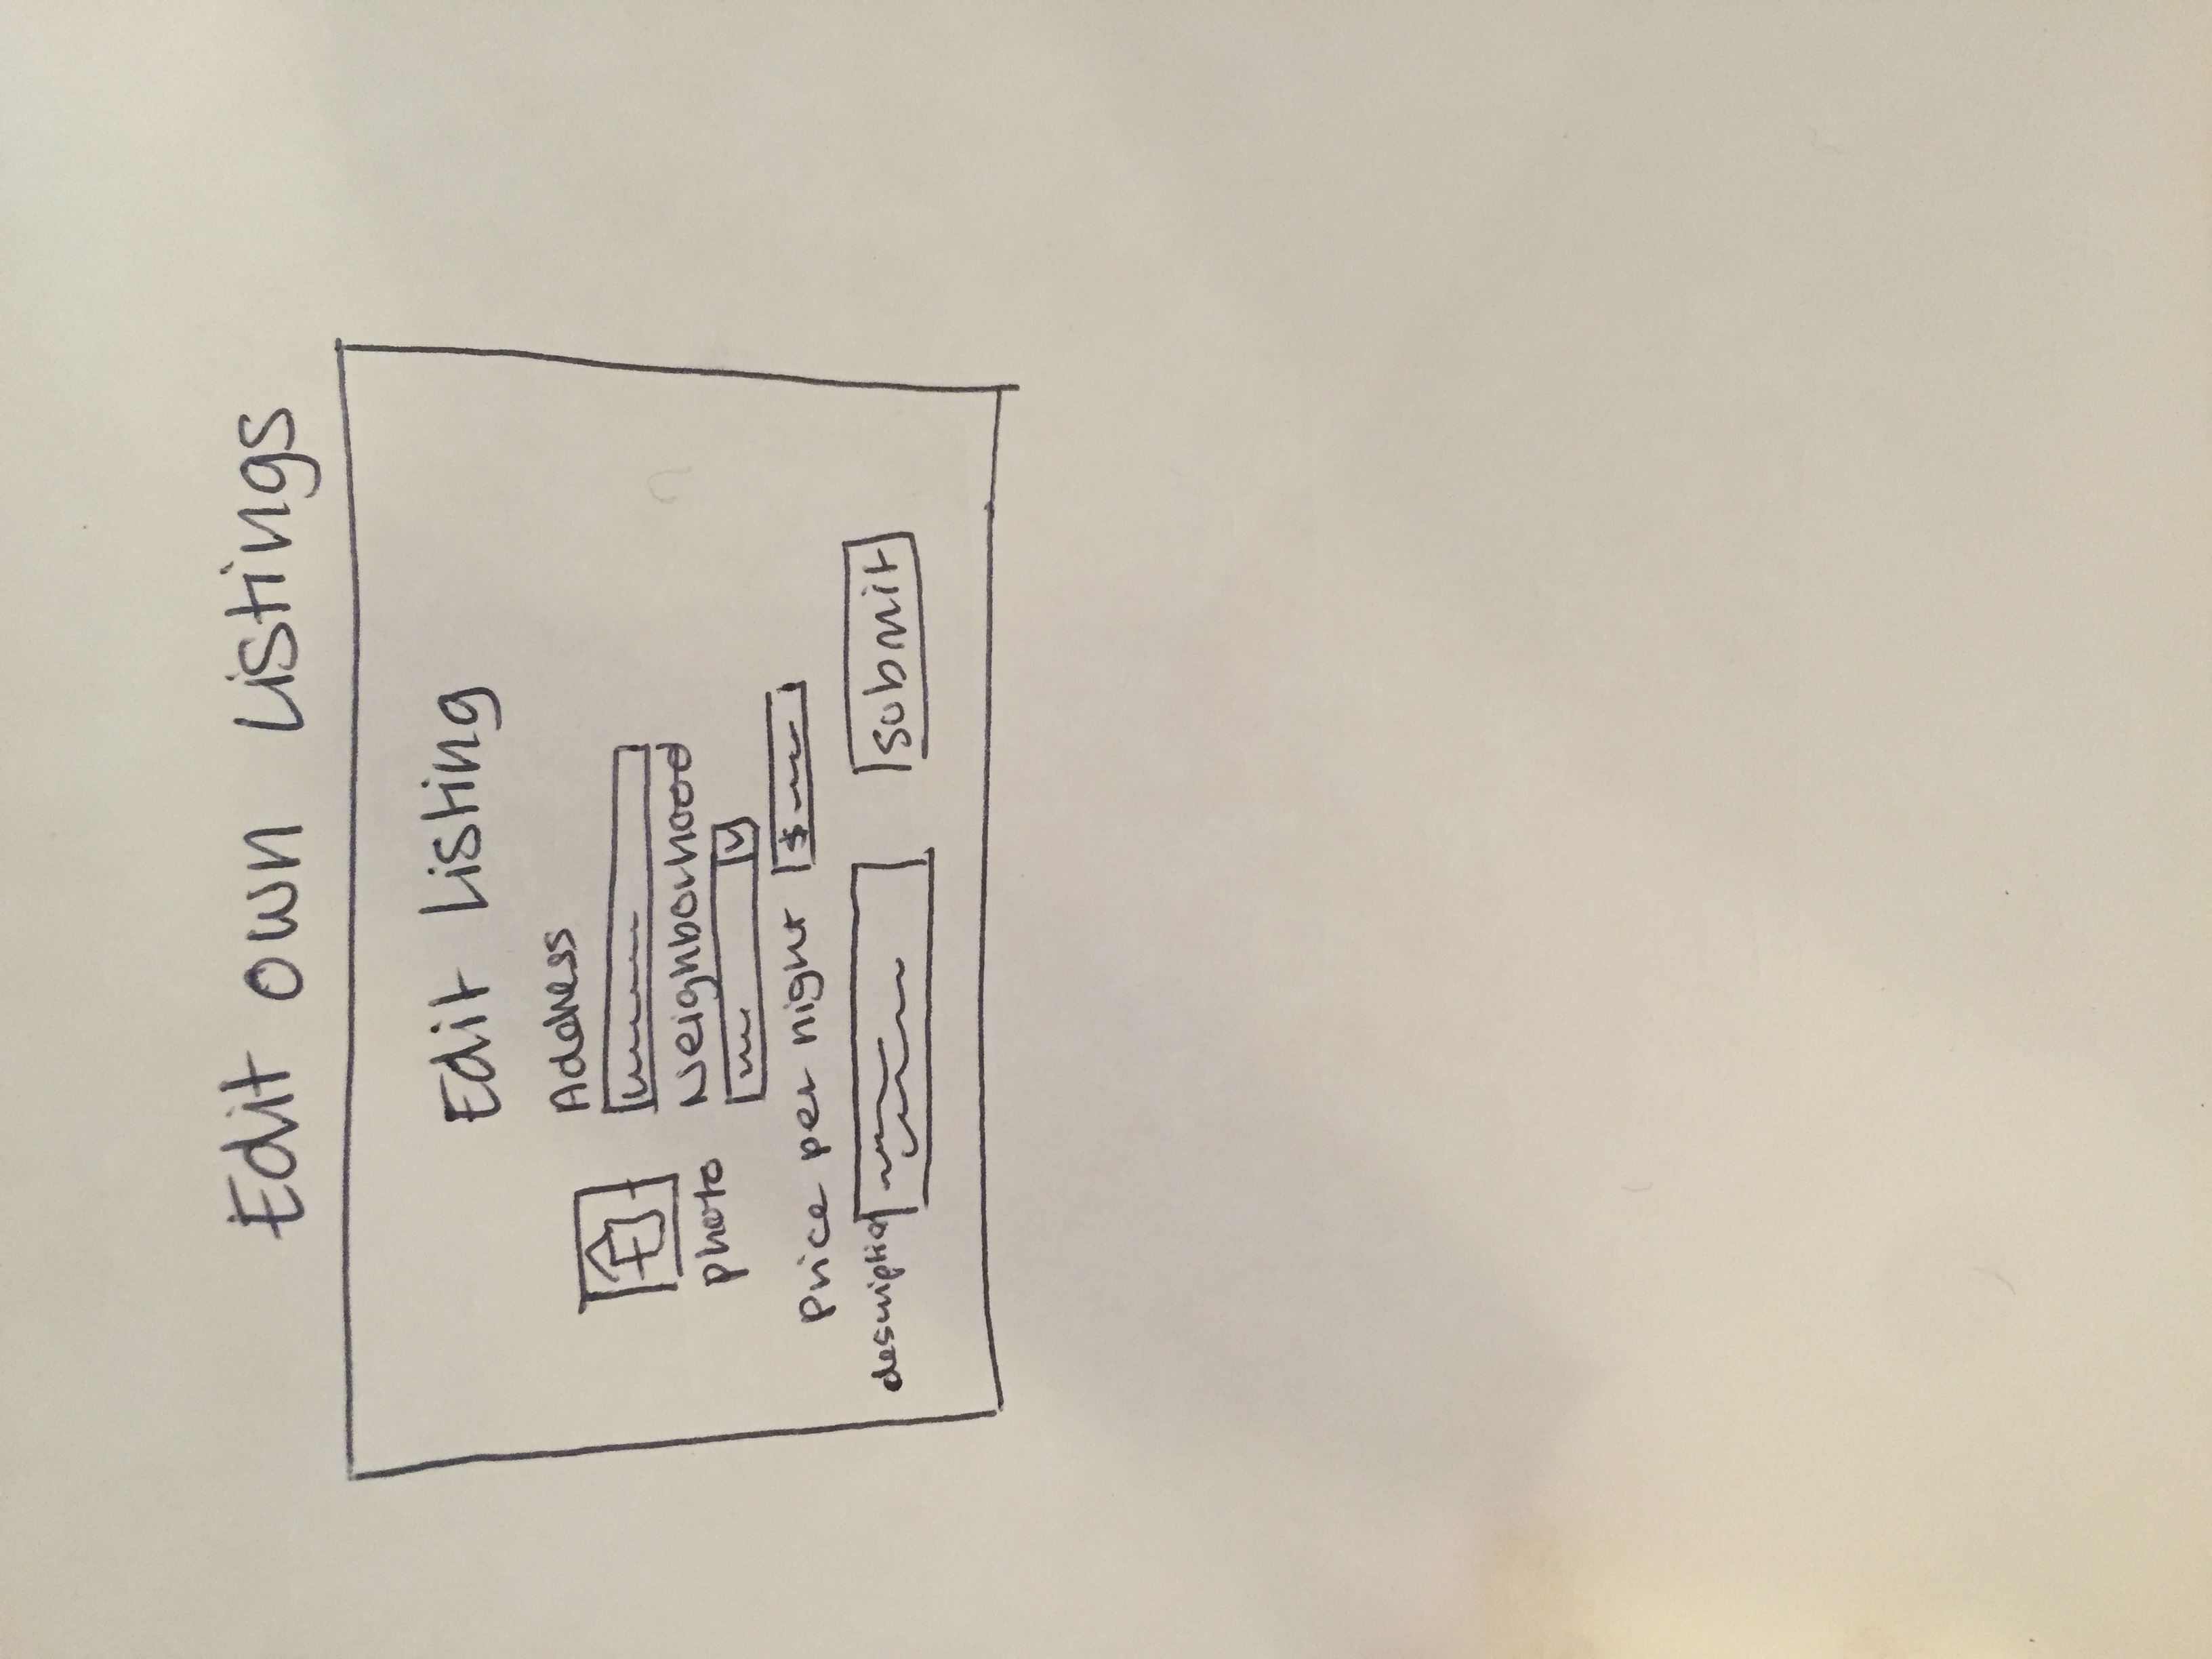 Edit own Listings
Edit Listing
Address
photo
Neighborhood
Price per night $
description
submit